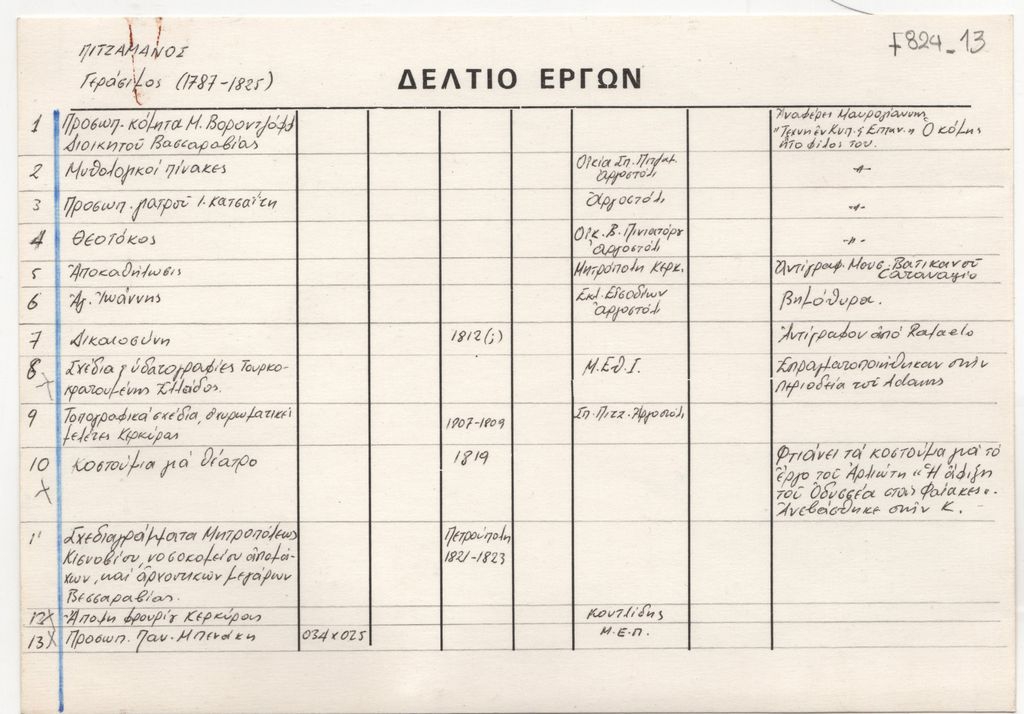 ΠΙΤΖΑΜΑΝΟΣ
Γεράσιμος (1787-1825)
F824-13
ΔΕΛΤΙΟ ΕΡΓΩΝ
1 Προσωπ. κόμητα Μ. Βοροντζόφφ
Διοικητού Βασσαραβίας
Ἀναφέρει Μαυρογιάννης
Ὁ κόμης
ἦτο φίλος του.
2 Μυθολογικοί πίνακες
Οἰκία Σπ. Πιτζαμ.
Ἀργοστόλι
-"-
3 Προσωπ. γιατροῦ Ι. Κατσαΐτη
Ἀργοστόλι
-"-
4 Θεοτόκος
Οἰκ. Β. Πινιατόρου
Ἀργοστόλι
-"-
5 Ἀποκαθήλωσις
Μητρόπολη Κερκ.
Ἀντίγραφ. Μουσ. Βατικανοῦ
6 Ἁγ. Ἰωάννης
Ἐκκλ. Εἰσοδίων
Ἀργοστόλι
Βημόθυρα.
7 Δικαιοσύνη
1812(;)
Ἀντίγραφον ἀπό Rafaelo
8 Σχέδια ὑδατογραφίες Τουρκο-
κρατουμένης Ἑλλάδος.
Μ.Εθ.Ι.
Ἐπραγματοποιήθηκαν στήν
περιοδεία τοῦ Adams
9 Τοπογραφικά σχέδια, ὀχυρωματικές
μελέτες Κερκύρας
1807-1809
Σπ. Πιτζ. Ἀργοστόλι
10 Κοστούμια γιά θέατρο
1819
Φτιάνει τά κοστούμια γιά τό
ἔργο τοῦ Ἀρλιώτη "Ἡ ἄφιξη
τοῦ Ὀδυσσέα στούς Φαίακες".
Ἀνεβάσθηκε στήν Κ.
11 Σχεδιαγράμματα Μητροπόλεως
Κισνοβίου, νοσοκομείου ἀπομά-
χων, καί ἀρχοντικῶν μεγάρων
Βεσσαραβίας.
Πετρούπολη
1821-1823
12 Ἄποψη φρουρίου Κερκύρας
Κουτλίδης
13 Προσωπ. Παν. Μπενάκη
034x025
Μ.Ε.Π.